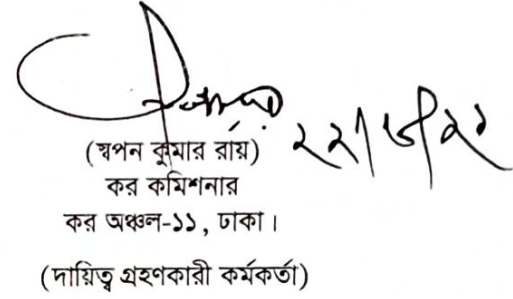 ২২/৬/২২
(স্বপন কুমার রায়)
কর কমিশনার
কর অঞ্চল-১১, ঢাকা।
(দায়িত্ব গ্রহণকারী কর্মকর্তা)